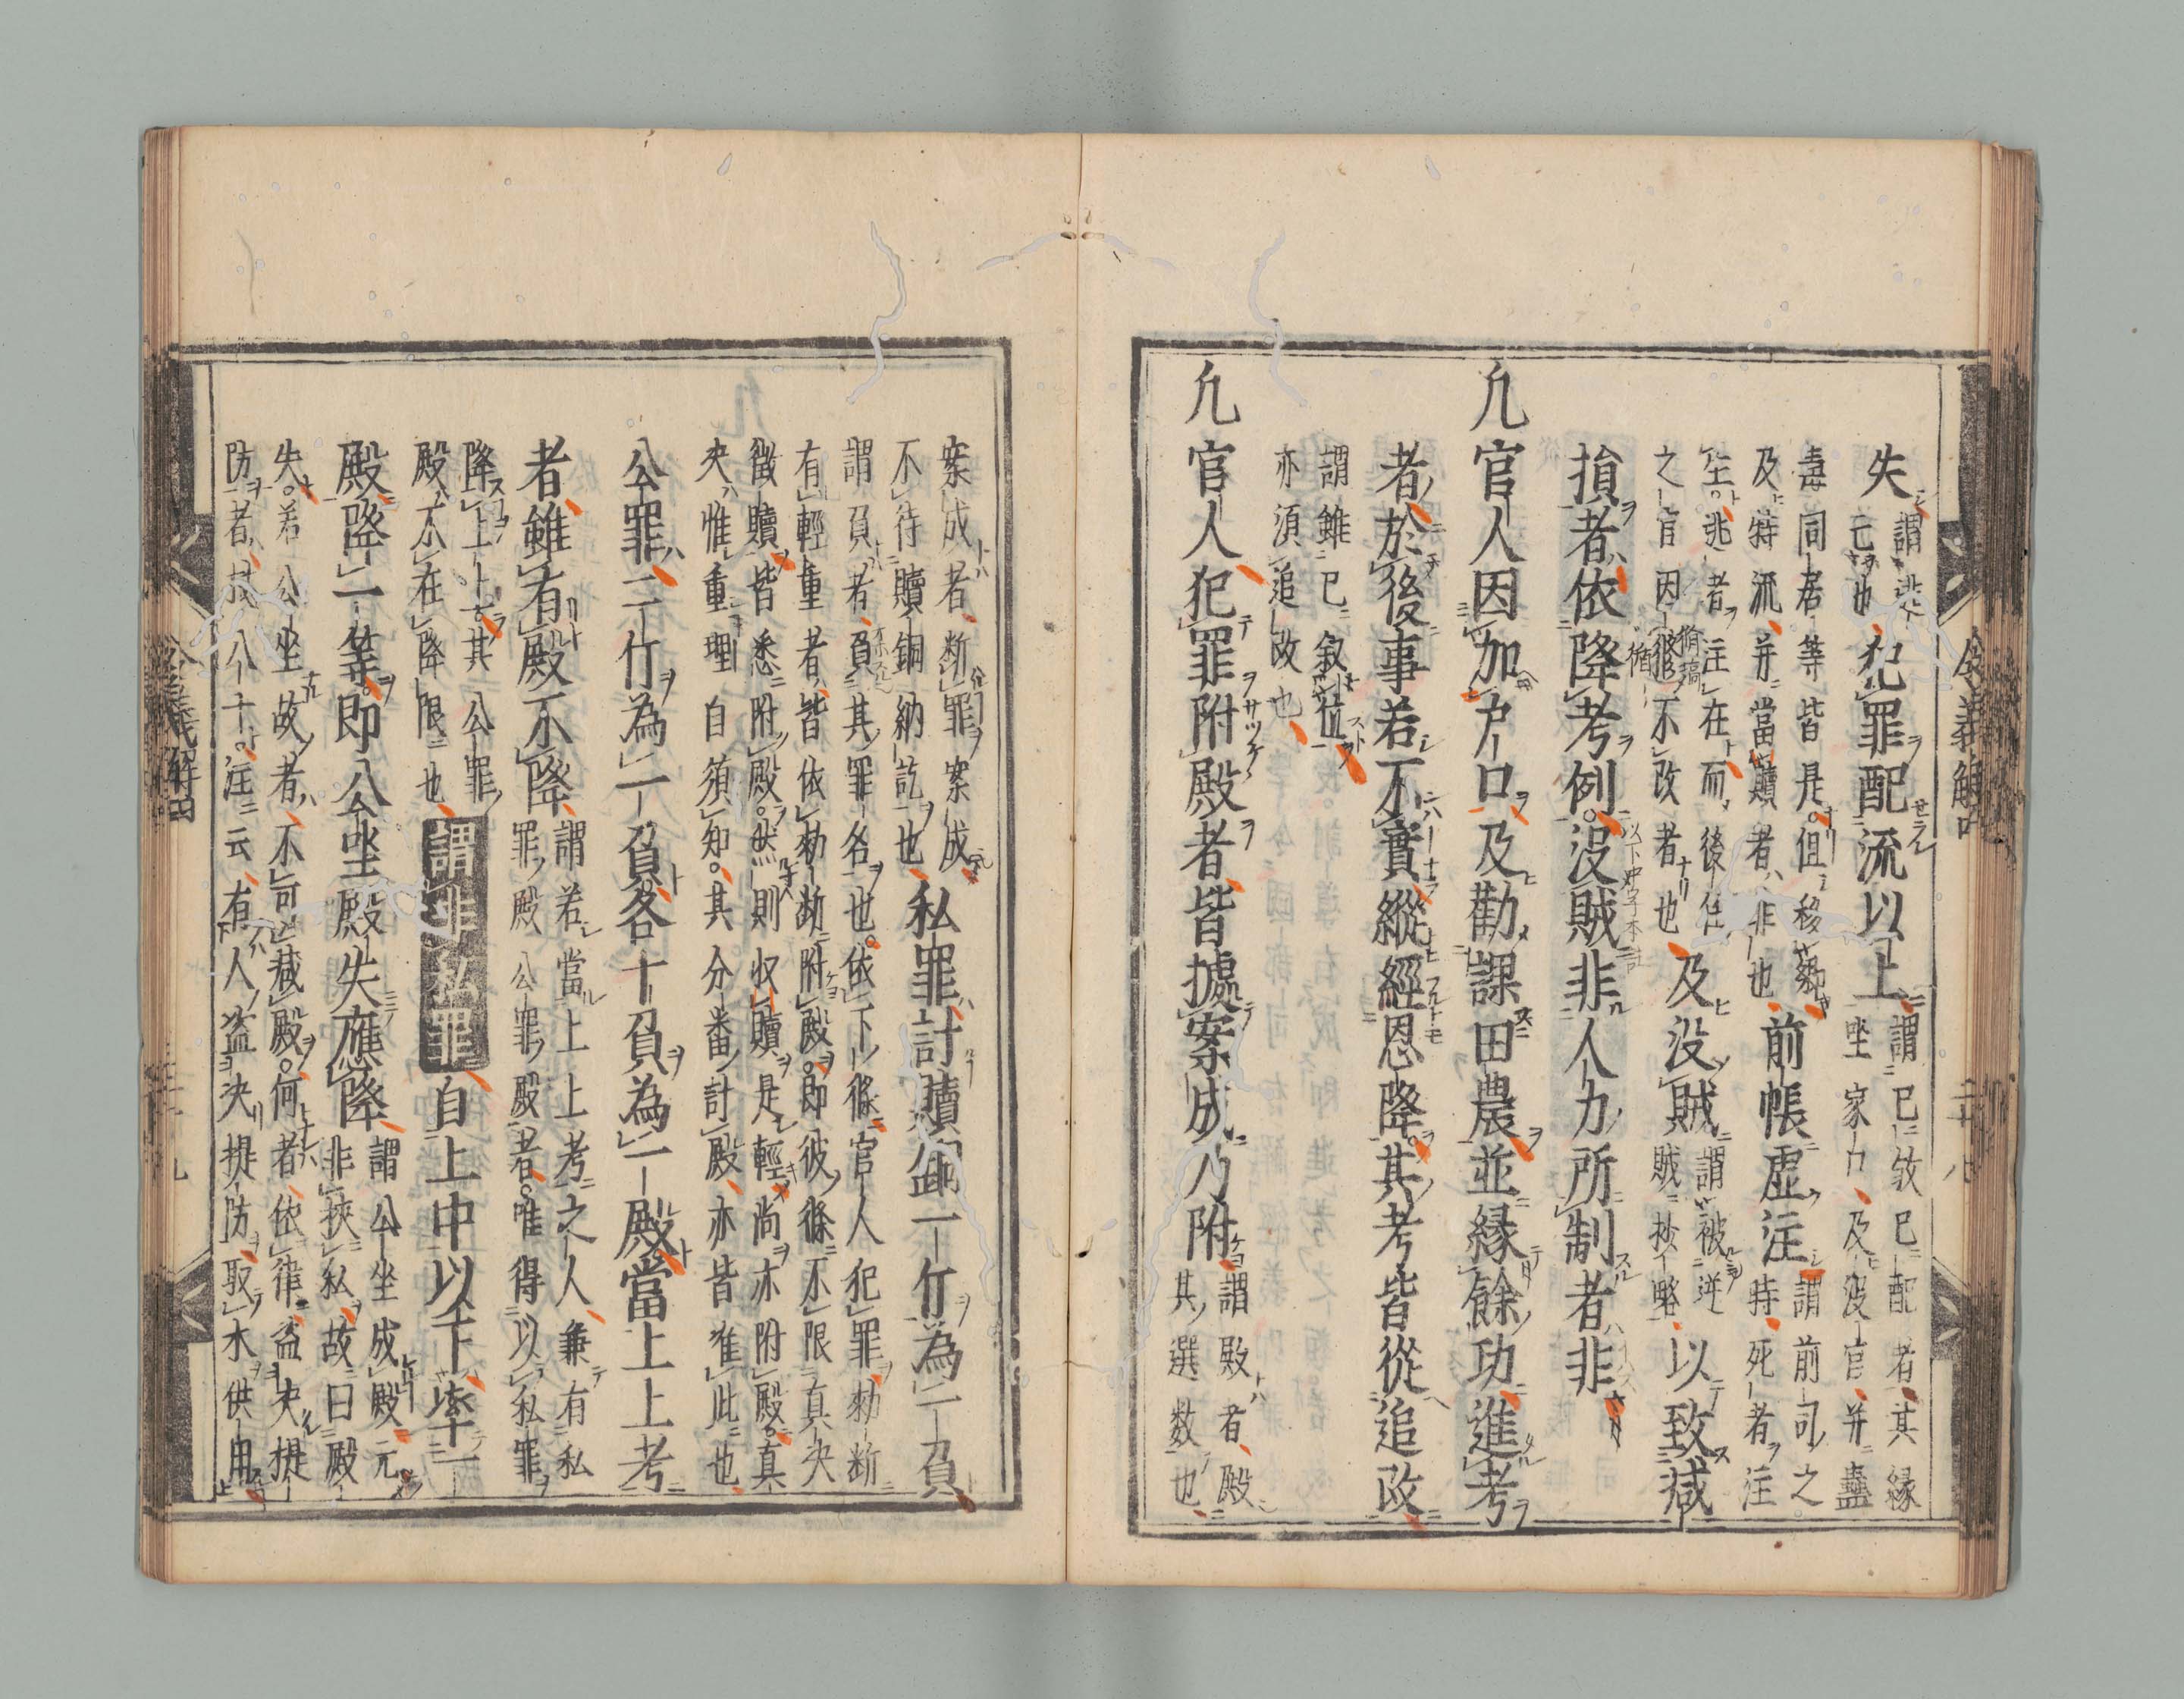 失謂逃亡也犯罪配流以上謂已敘已配者其縁坐家口及没官并蠱
毒同居等皆是但移郷及特流并當贖者非也前帳虚注謂前司之時死者注
生逃者注在而後任之官因循不改者也及没賊謂被逆賊抄略以致减
損者依降考例没賊非人力所制者非
凢官人因加戸口及勸課田農並縁餘功進考
者於後事若不實縱經恩降其考皆從追改
謂雖已敘位亦須追改也
凢官人犯罪附殿者皆據案成乃附謂殿者殿其選数也
令義解四 二十八
案成者断罪案成不待贖銅納訖也私罪計贖銅一斤為一負
謂負者負其罪名也依下條官人犯罪勅断
有輕重者皆依勅断附殿即彼條不限真决
徴贖皆悉附殿然則收贖是輕尚亦附殿真
决惟重理自須知其分番計殿亦皆准此也
公罪二斤為一負各十負為一殿當上上考
者雖有殿不降謂若當上上考之人兼有私罪殿公罪殿者唯得以私罪
降上上其公罪殿不在降限也謂非私罪自上中以下率一
殿降一等即公坐殿失應降謂公坐成殿元非挾私故曰殿
失若公坐故者不可减殿何者依律盗决堤
防者杖八十注云有人盗决堤防取水供用
令義解四 二十九